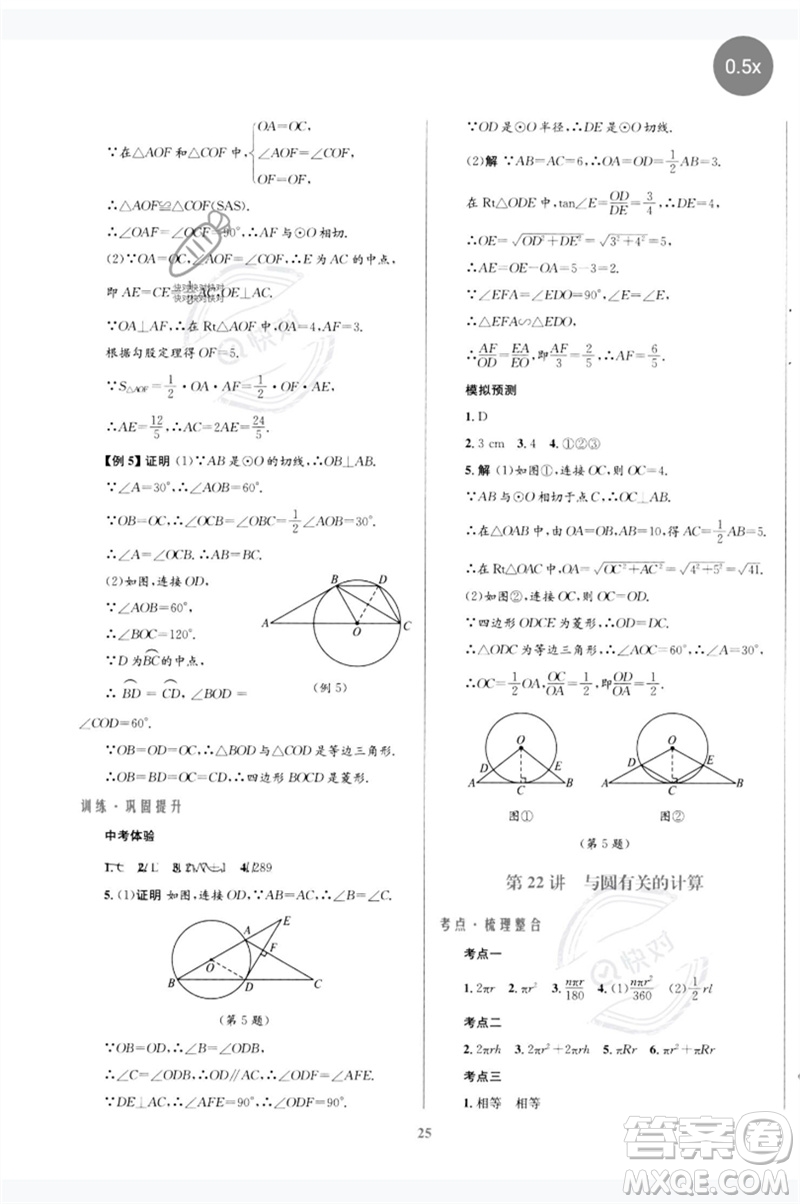 0.5x
OA=OC,
∵在△AOF 和△COF 中, ∠AOF=∠COF,
OF=OF.
∴△AOF≌△COF(SAS).
∴∠OAF=∠OCF=90°,∴AF与⊙O相切.
(2)∵OA=OC,∠AOF=∠COF,∴E为 AC 的中点,
即 AE=CE=1/2AC,OE⊥AC.
快对快对快对
快对快对快对
∵OA⊥AF,∴在 Rt△AOF 中,∵OA=4,AF=3,
根据勾股定理得 OF=5.
∵S△AOF=1/2·OA·AF=1/2·OF·AE,
∴AE=12/5,∴AC=2AE=24/5.
【例 5】证明 (1)∵AB是⊙O的切线,∴OB⊥AB.
∵∠A=30°,∴∠AOB=60°.
∵OB=OC,∴∠OCB=∠OBC=1/2∠AOB=30°.
∴∠A=∠OCB. ∴AB=BC.
(2)如图,连接 OD,
∵∠AOB=60°,
∴∠BOC=120°.
∵D为BC的中点,
∴ BD = CD, ∠BOD=
∠COD=60°.
B D A O C
(例 5)
∵OB=OD=OC,∴△BOD与△COD是等边三角形.
∴OB=BD=OC=DC.∴四边形 BOCD 是菱形.
训练·巩固提升
中考体验
5.(1)证明 如图,连接 OD,∵AB=AC,∴∠B=∠C.
E A F O B D C
(第 5 题)
∵OB=OD,∴∠B=∠ODB,
∴∠C=∠ODB,∴OD∥AC,∴∠ODE=∠AFE.
∵DE⊥AC,∴∠AFE=90°,∴∠ODE=90°.
∵OD是⊙O半径,∴DE是⊙O切线.
(2)解 ∵AB=AC=6,∴OD=1/2AB=3.
在 Rt△ODE 中,tan∠E=OD/DE=3/4,∴DE=4.
∴OE=√OD²+DE²=√3²+4²=5.
∴EA=OE-OA=5-3=2.
∵∠EFA=∠EDO=90°,∠E=∠E,
∴△EFA∽△EDO.
∴AF/DO=EA/EO,即AF/3=2/5,∴AF=6/5.
模拟预测
1.D
2.3 cm 3.4 4.①②③
5.解 (1)如图①,连接 OC,则 OC=4.
∵AB与⊙O相切于点C,∴OC⊥AB.
∴在△OAB 中,由 OA=OB,AB=10,得 AC=1/2AB=5.
∴在 Rt△OAC 中,OA=√OC²+AC²=√4²+5²=√41.
(2)如图②,连接 OC,则 OC=OD.
∵四边形 ODCE 为菱形,∴OD=DC.
∴△ODC 为等边三角形,∴∠AOC=60°.∴∠A=30°.
∴OC=1/2OA,OC/OA=1/2,即OD/OA=1/2.
O D E A C B
图①
O D E A C B
图②
(第 5 题)
第 22 讲 与圆有关的计算
考点·梳理整合
考点一
1.2πr 2.πr² 3.nπr/180 4.(1)nπr²/360 (2)1/2rl
考点二
2.2πrh 3.2πr²+2πrh 5.πRr 6.πr²+πRr
考点三
1.相等 相等
25
快对
快对
答案圈
MXQE.COM